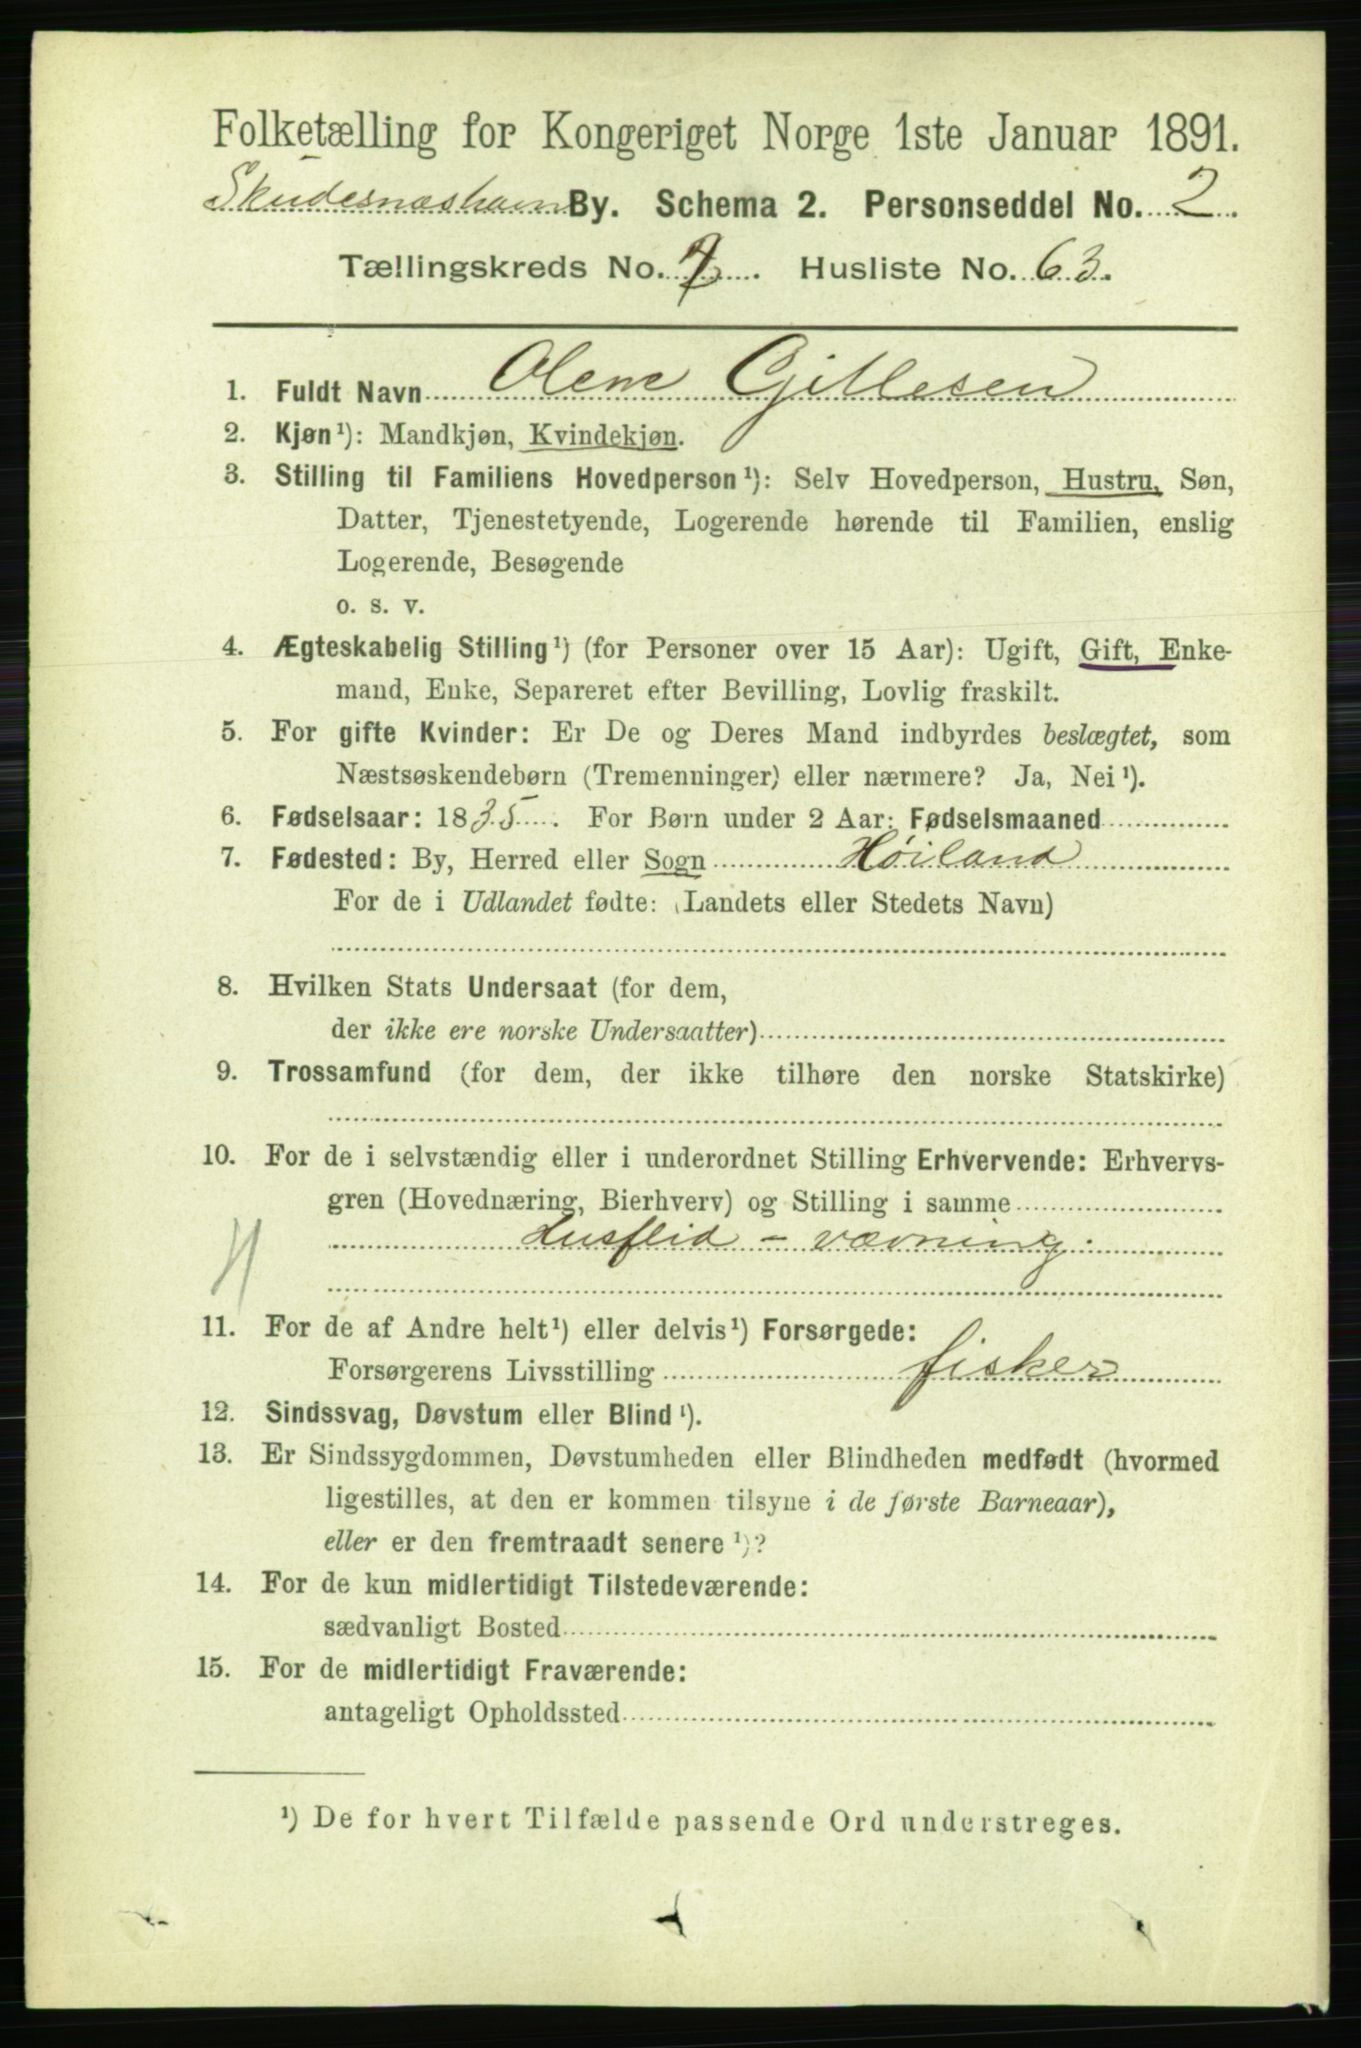 Folketælling for Kongeriget Norge 1ste Januar 1891.
Skudesnæshavn By. Schema 2. Personseddel No. 2
Tællingskreds No. 2. Husliste No. 63.
1. Fuldt Navn Olene Gjillesen
2. Kjøn¹): Mandkjøn, Kvindekjøn.
3. Stilling til Familiens Hovedperson¹): Selv Hovedperson, Hustru, Søn,
Datter, Tjenestetyende, Logerende hørende til Familien, enslig
Logerende, Besøgende
o. s. v.
4. Ægteskabelig Stilling¹) (for Personer over 15 Aar): Ugift, Gift, Enke-
mand, Enke, Separeret efter Bevilling, Lovlig fraskilt.
5. For gifte Kvinder: Er De og Deres Mand indbyrdes beslægtet, som
Næstsøskendebørn (Tremenninger) eller nærmere? Ja, Nei¹).
6. Fødselsaar: 1835. For Børn under 2 Aar: Fødselsmaaned
7. Fødested: By, Herred eller Sogn Høiland
For de i Udlandet fødte: (Landets eller Stedets Navn)
8. Hvilken Stats Undersaat (for dem,
der ikke ere norske Undersaatter)
9. Trossamfund (for dem, der ikke tilhøre den norske Statskirke)
10. For de i selvstændig eller i underordnet Stilling Erhvervende: Erhvervs-
gren (Hovednæring, Bierhverv) og Stilling i samme
Husflid - vævning.
11. For de af Andre helt¹) eller delvis¹) Forsørgede:
Forsørgerens Livsstilling fisker
12. Sindssvag, Døvstum eller Blind¹).
13. Er Sindssygdommen, Døvstumheden eller Blindheden medfødt (hvormed
ligestilles, at den er kommen tilsyne i de første Barneaar),
eller er den fremtraadt senere¹)?
14. For de kun midlertidigt Tilstedeværende:
sædvanligt Bosted
15. For de midlertidigt Fraværende:
antageligt Opholdssted
¹) De for hvert Tilfælde passende Ord understreges.